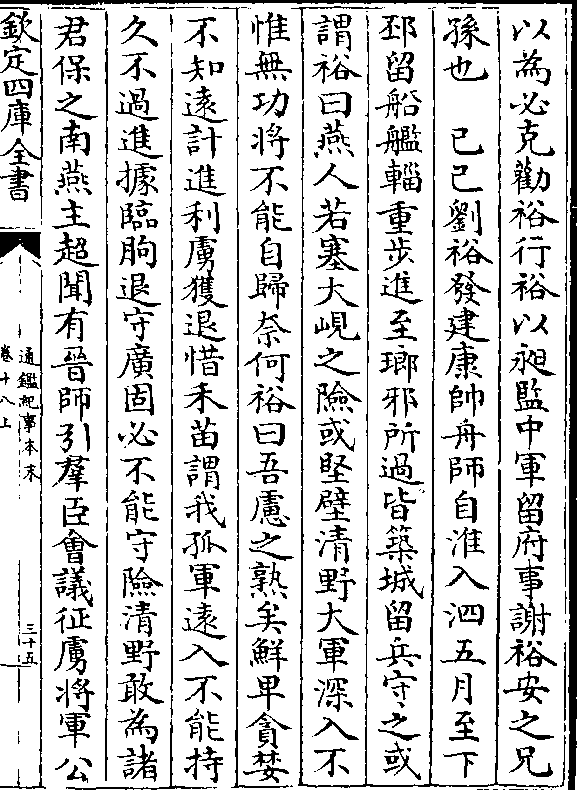 以為必克勸裕行裕以昶監中軍留府事謝裕安之兄
孫也　己巳劉裕發建康帥舟師自淮入泗五月至下
邳留船艦輜重步進至瑯邪所過皆築城留兵守之或
謂裕曰燕人若塞大峴之險或堅壁清野大軍深入不
惟無功將不能自歸奈何裕曰吾慮之熟矣鮮卑貪婪
不知遠計進利虜獲退惜禾苗謂我孤軍遠入不能持
久不過進據臨朐退守廣固必不能守險清野敢為諸
君保之南燕主超聞有晉師引羣臣會議征虜將軍公
欽定四庫全書
通鑑紀事本末
卷十八上
三十五